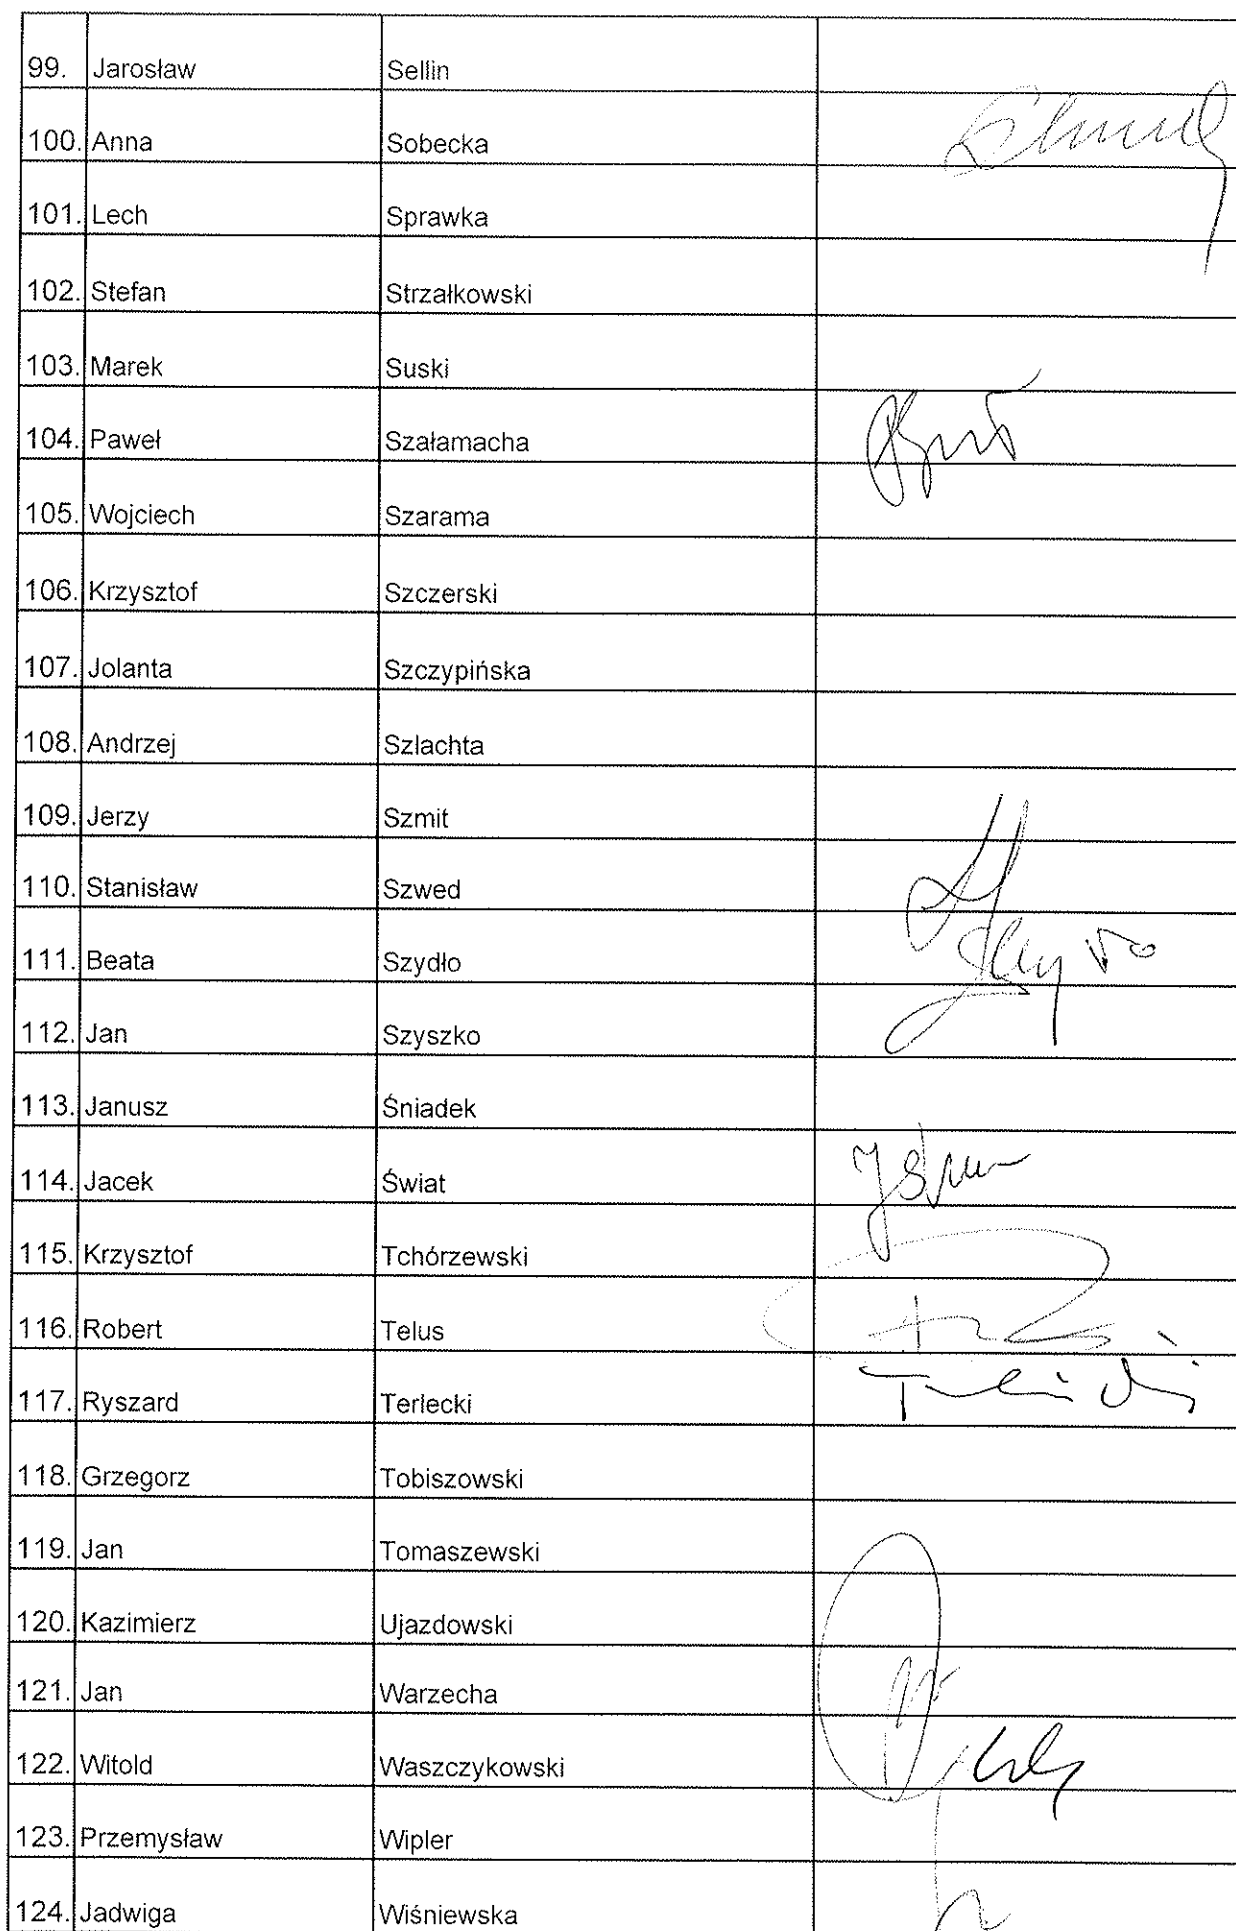 99. Jarosław Sellin
100. Anna Sobecka
101. Lech Sprawka
102. Stefan Strzałkowski
103. Marek Suski
104. Paweł Szałamacha
105. Wojciech Szarama
106. Krzysztof Szczerski
107. Jolanta Szczypińska
108. Andrzej Szlachta
109. Jerzy Szmit
110. Stanisław Szwed
111. Beata Szydło
112. Jan Szyszko
113. Janusz Śniadek
114. Jacek Świat
115. Krzysztof Tchórzewski
116. Robert Telus
117. Ryszard Terlecki
118. Grzegorz Tobiszowski
119. Jan Tomaszewski
120. Kazimierz Ujazdowski
121. Jan Warzecha
122. Witold Waszczykowski
123. Przemysław Wipler
124. Jadwiga Wiśniewska